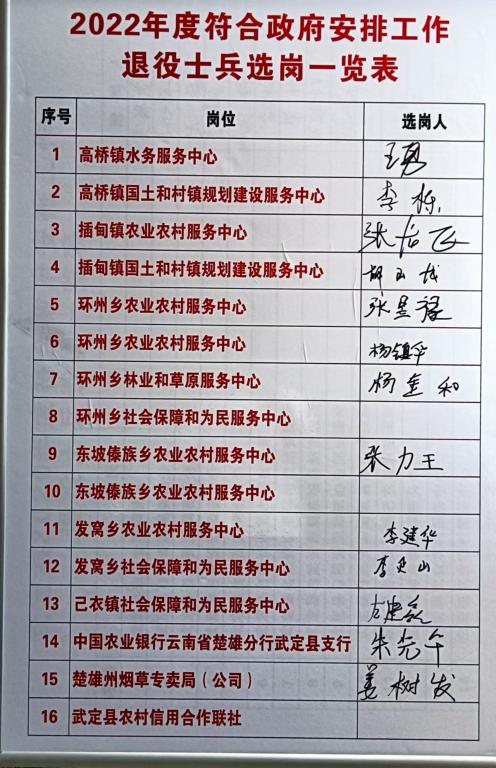 2022年度符合政府安排工作
退役士兵选岗一览表
序号 岗位 选岗人
1 高桥镇水务服务中心 王勇
2 高桥镇国土和村镇规划建设服务中心 李栎
3 插甸镇农业农村服务中心 张怡飞
4 插甸镇国土和村镇规划建设服务中心
5 环州乡农业农村服务中心 张昱禄
6 环州乡农业农村服务中心 杨镇华
7 环州乡林业和草原服务中心 杨金和
8 环州乡社会保障和为民服务中心
9 东坡傣族乡农业农村服务中心 张力王
10 东坡傣族乡农业农村服务中心
11 发窝乡农业农村服务中心 李建华
12 发窝乡社会保障和为民服务中心 李更山
13 己衣镇社会保障和为民服务中心
14 中国农业银行云南省楚雄分行武定县支行 朱光午
15 楚雄州烟草专卖局（公司） 姜树发
16 武定县农村信用合作联社